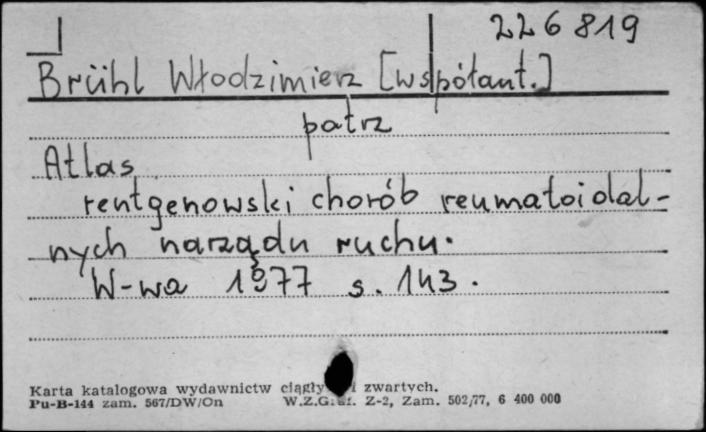 226 819
Brühl Włodzimierz [współaut.]
patrz
Atlas
rentgenowski chorób reumatoidal-
nych narządu ruchu.
W-wa 1977 s. 143.
Karta katalogowa wydawnictw zwartych.
Pu-B-144 zam. 567/DW/On W.Z.Graf. Z-2, Zam. 502/77, 6 400 000